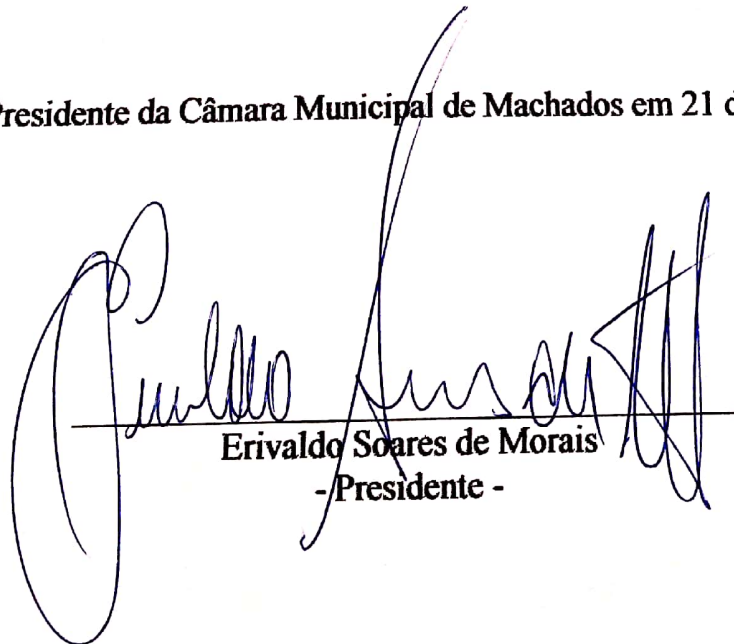 Presidente da Câmara Municipal de Machados em 21 d
Erivaldo Soares de Morais
- Presidente -